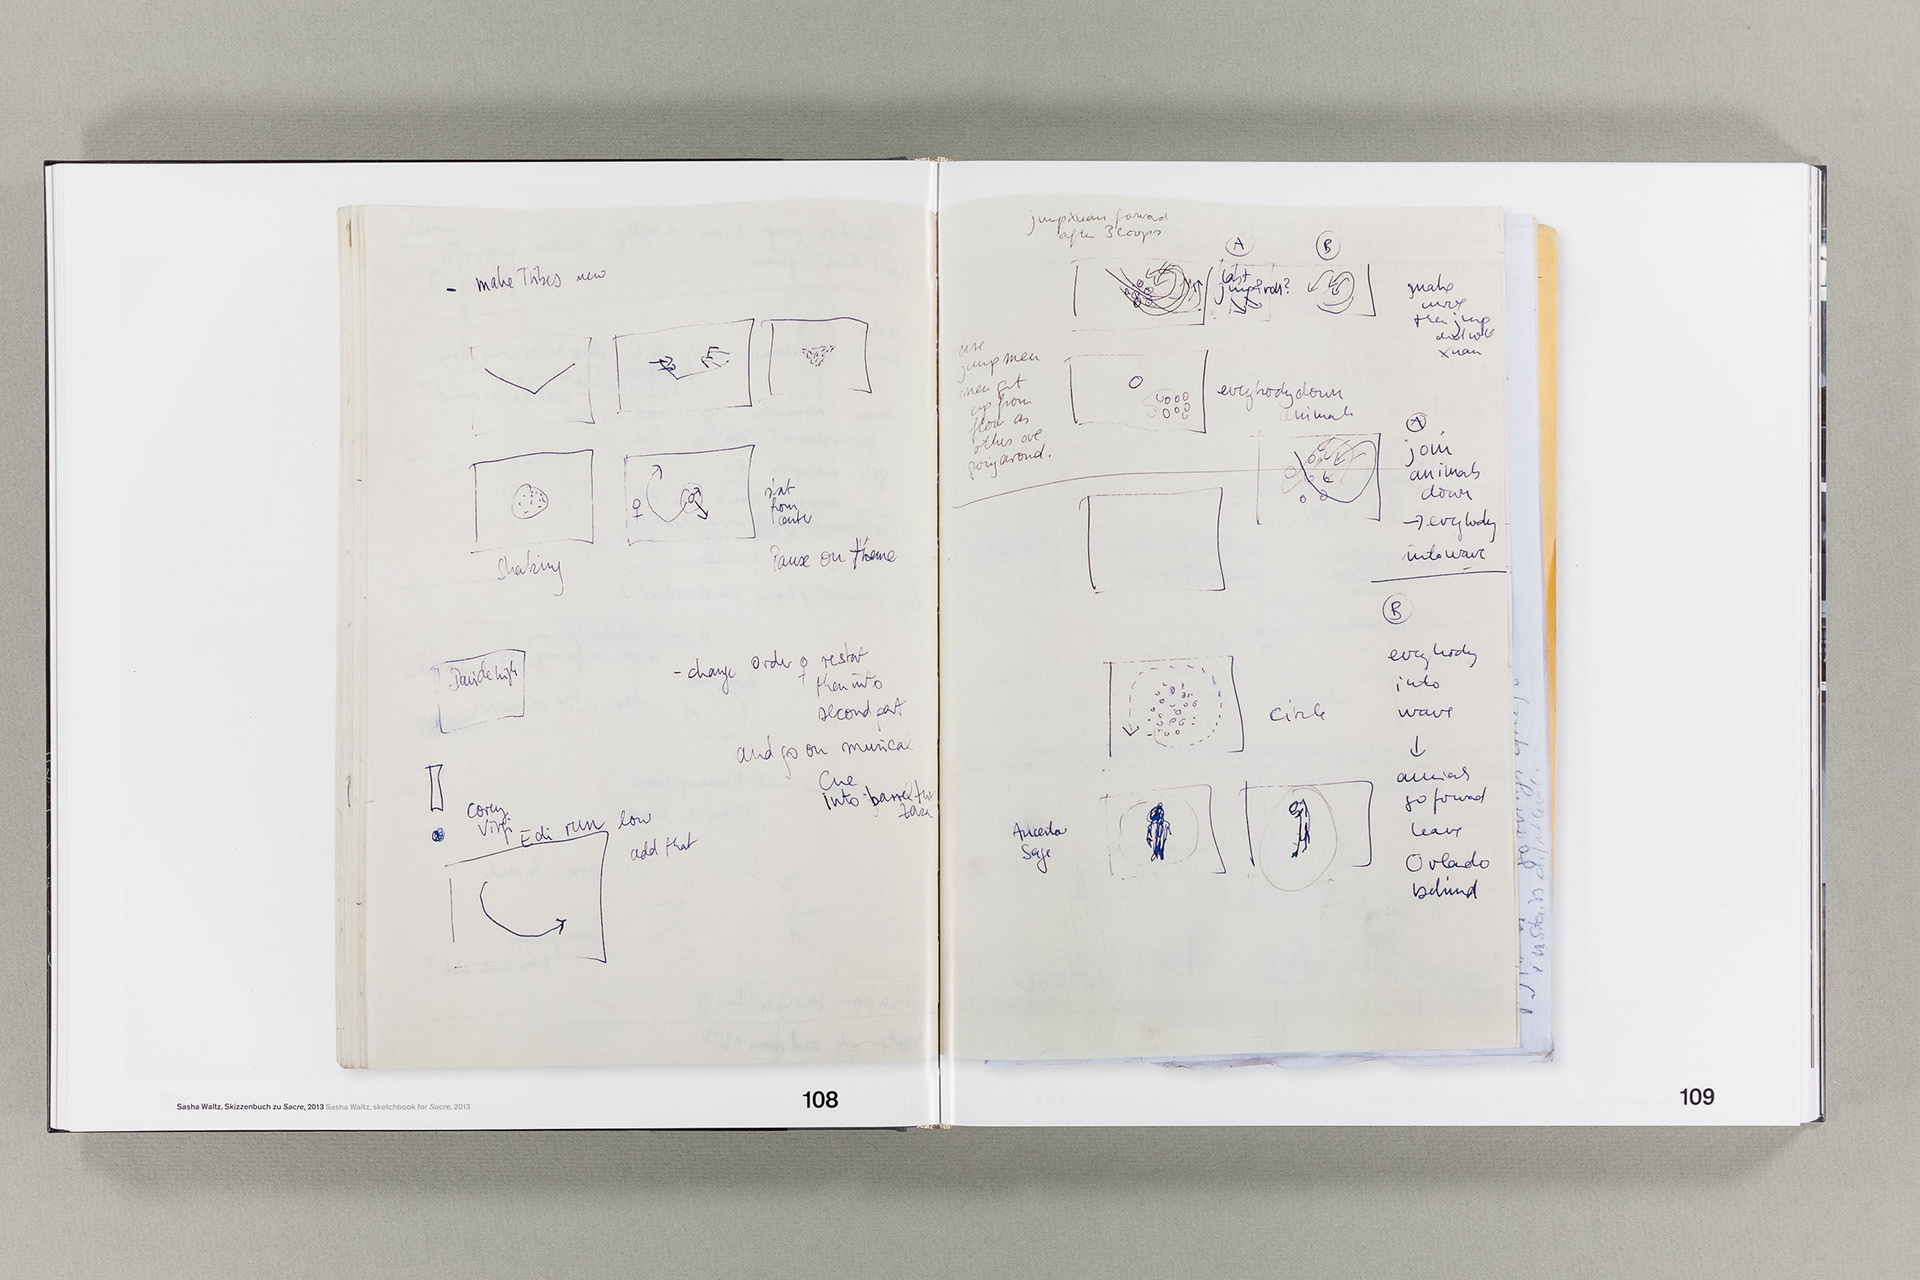 - make Tribes new
Shaking
from
Pause on theme
- change order ♀ restart
then into
second part
and go on musical
cue
into
Edi run low
add that
Sasha Waltz, Skizzenbuch zu Sacre, 2013 Sasha Waltz, sketchbook for Sacre, 2013
108
jump xuan forward
after 3 loops
A
B
last
jump
make
then jump
xuan
jump men
men get
up from
floor as
others are
going around.
everybody down
animals
A
join
animals
down
→ everybody
into wave
B
everybody
into
wave
↓
go forward
leave
Orlando
behind
circle
Sage
109